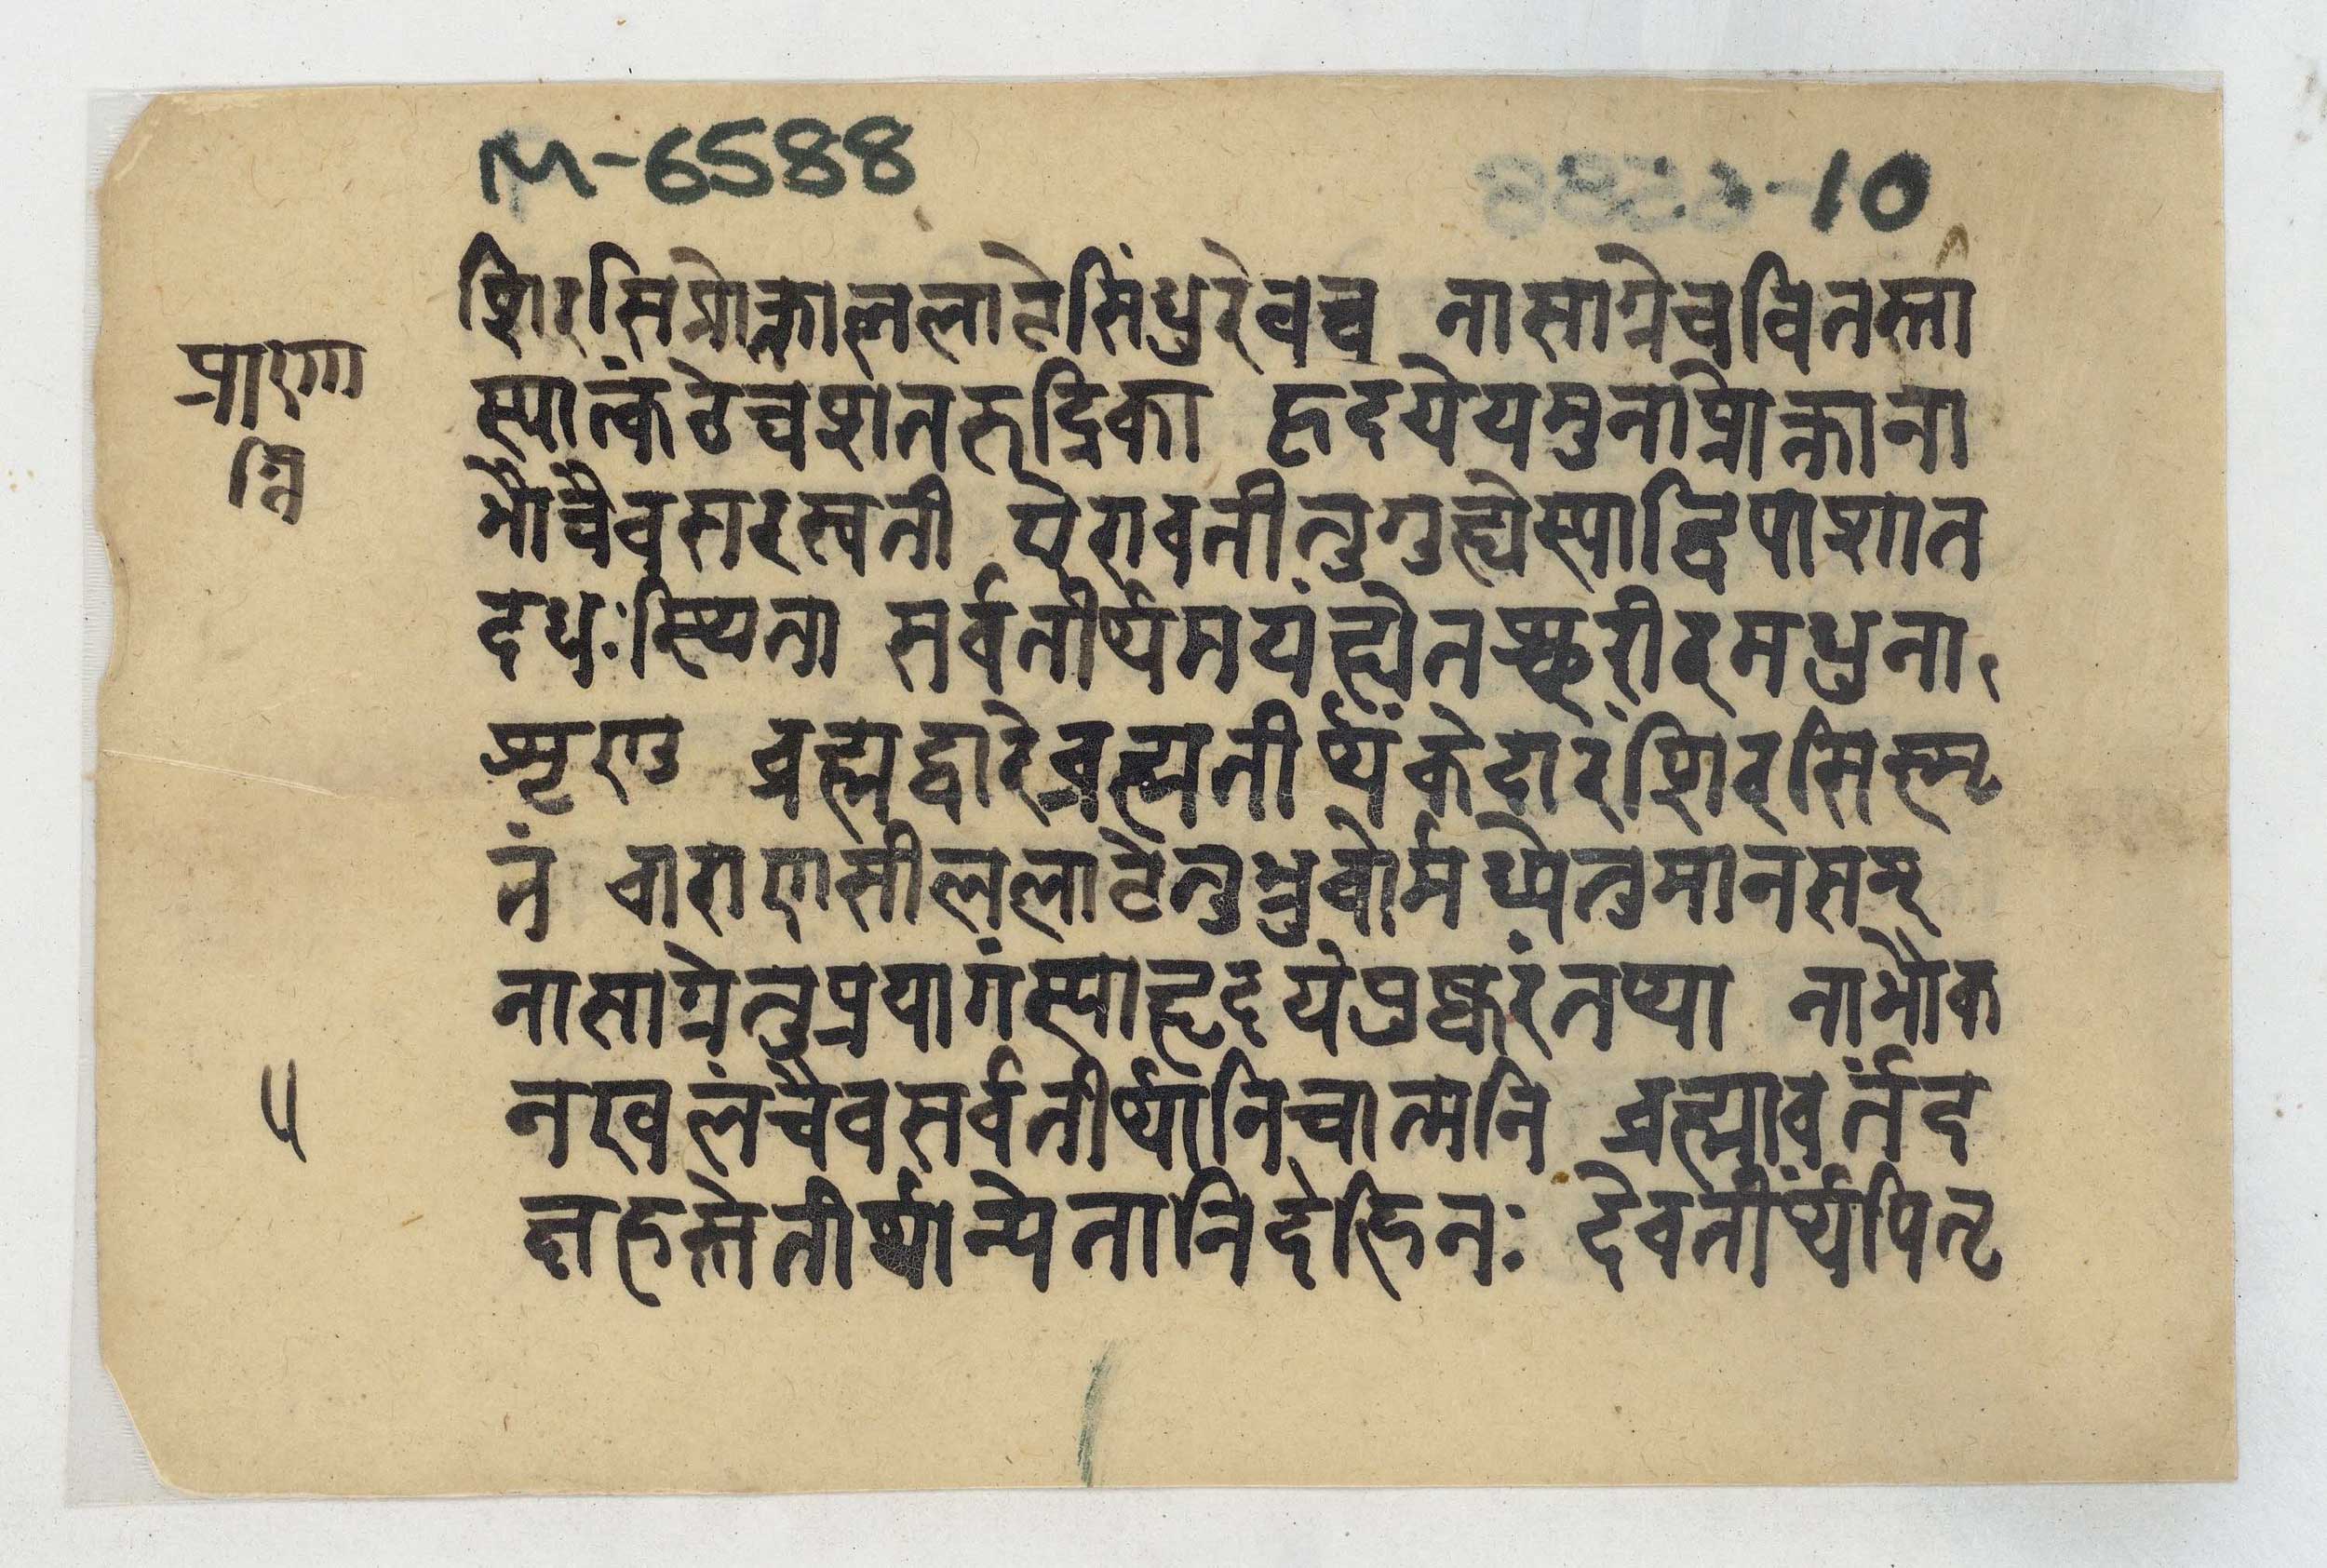 M-6588
10
शिरसिप्रोक्ताललाटेसिंधुरेवच नासाग्रेचवितस्ता
प्राणा
स्यात्कंठेचशतरुद्रिका हृदयेयमुनाप्रोक्ताना
ग्नि
भौचैवसरस्वती ऐरावतीतुगुह्येस्याद्विपाशात
दधःस्थिता सर्वतीर्थमयंह्येतच्छरीरमधुना
शृणु ब्रह्मद्वारेब्रह्मतीर्थंकेदारंशिरसिस्मृ
तं वाराणसीललाटेतुभ्रुवोर्मध्येतुमानसम्
नासाग्रेतुप्रयागंस्याहृदयेपुष्करंतथा नाभौक
नखलंचैवसर्वतीर्थानिचात्मनि ब्रह्मावर्तंद
५
क्षहस्तेतीर्थान्येतानिदेहिनः देवतीर्थंपितृ